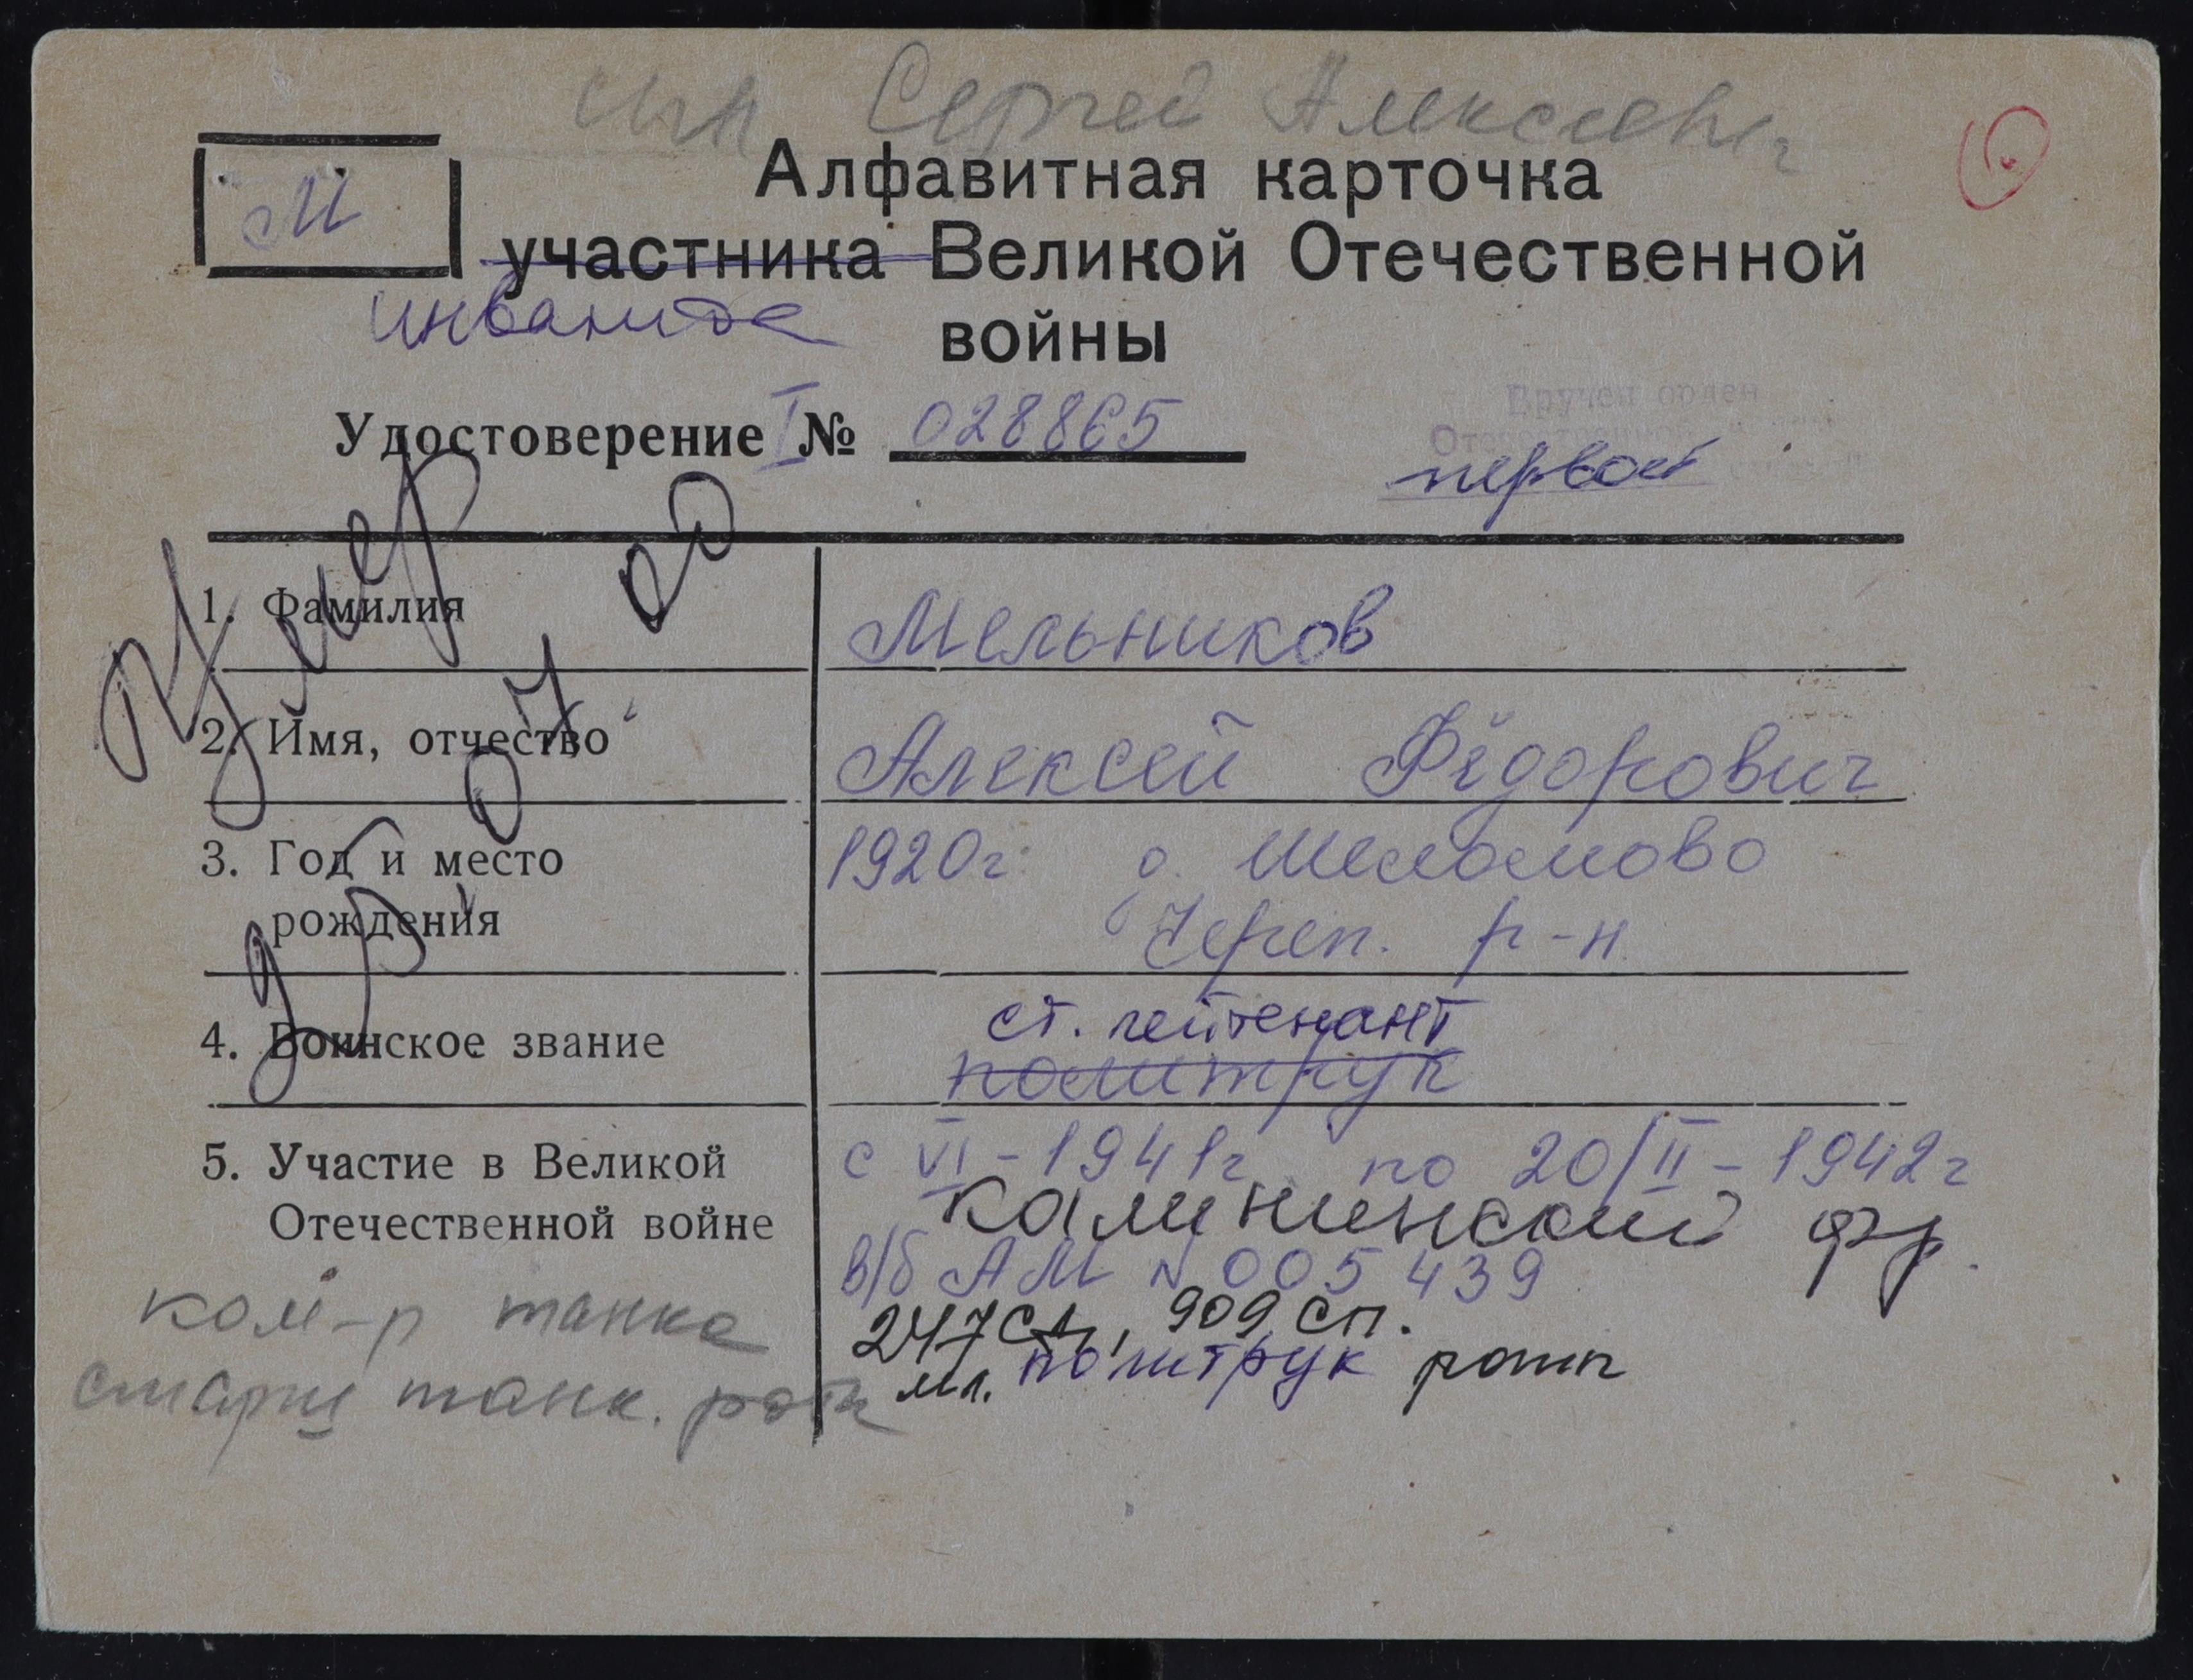 сын Сергей Алексеевич
М
Алфавитная карточка
участника Великой Отечественной
инвалида
войны
Удостоверение I № 028865
Вручен орден
Отечественной войны
первой
Умер
1. Фамилия Мельников
2. Имя, отчество Алексей Фёдорович
3. Год и место рождения 1920г. д. Шеломово
Череп. р-н
4. Воинское звание ст. лейтенант
политрук
5. Участие в Великой с VI-1941г по 20/II-1942г
Отечественной войне Калининский фр.
в/б АМ № 005439
ком-р танка 247 сд, 909 сп.
старш танк. роты мл. политрук роты